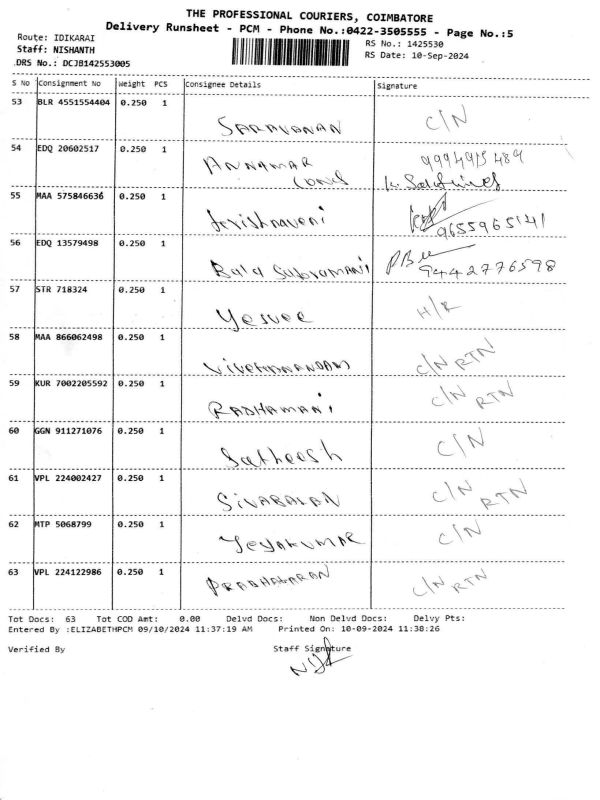 THE PROFESSIONAL COURIERS, COIMBATORE
Delivery Runsheet - PCM - Phone No.:0422-3505555 - Page No.:5
Route: IDIKARAI
Staff: NISHANTH
DRS No.: DCJB142553005
RS No.: 1425530
RS Date: 10-Sep-2024
S No Consignment No Weight PCS Consignee Details Signature
53 BLR 4551554404 0.250 1 SARAVANAN C/N
54 EDQ 20602517 0.250 1 ANNAMAR 9994915489
55 MAA 575846636 0.250 1 9655965141
56 EDQ 13579498 0.250 1 Bala Subramani 9442776598
57 STR 718324 0.250 1 Yesvee H/R
58 MAA 866062498 0.250 1 C/N RTN
59 KUR 7002205592 0.250 1 RADHAMANI C/N RTN
60 GGN 911271076 0.250 1 Satheesh C/N
61 VPL 224002427 0.250 1 SIVABALAN C/N RTN
62 MTP 5068799 0.250 1 JEYAKUMAR C/N
63 VPL 224122986 0.250 1 PRABHAKARAN C/N RTN
Tot Docs: 63 Tot COD Amt: 0.00 Delvd Docs: Non Delvd Docs: Delvy Pts:
Entered By :ELIZABETHPCM 09/10/2024 11:37:19 AM Printed On: 10-09-2024 11:38:26
Verified By Staff Signature